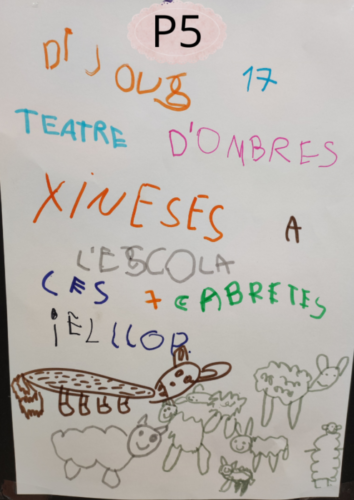 P5
DIJOUG 17
TEATRE D'OMBRES
XINESES A
L'ESCOLA
CES 7 CABRETES
IEL LLOP